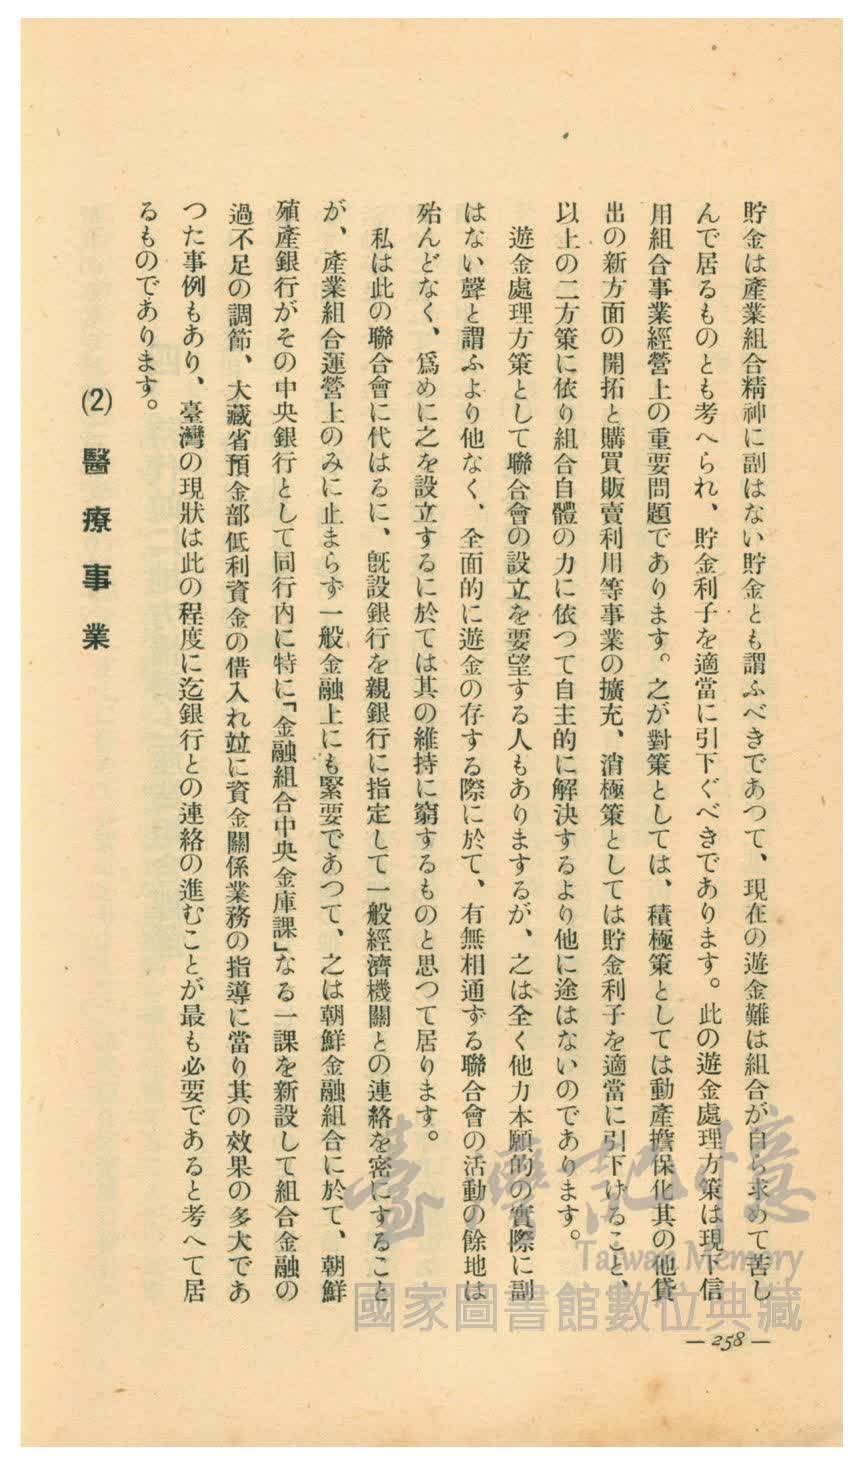 貯金は產業組合精神に副はない貯金とも謂ふべきであつて、現在の遊金難は組合が自ら求めて苦し
んで居るものとも考へられ、貯金利子を適當に引下ぐべきであります。此の遊金處理方策は現下信
用組合事業經營上の重要問題であります。之が對策としては、積極策としては動產擔保化其の他貸
出の新方面の開拓と購買販賣利用等事業の擴充、消極策としては貯金利子を適當に引下けること、
以上の二方策に依り組合自體の力に依つて自主的に解決するより他に途はないのであります。
遊金處理方策として聯合會の設立を要望する人もありまするが、之は全く他力本願的の實際に副
はない聲と謂ふより他なく、全面的に遊金の存する際に於て、有無相通ずる聯合會の活動の餘地は
殆んどなく、爲めに之を設立するに於ては其の維持に窮するものと思つて居ります。
私は此の聯合會に代はるに、旣設銀行を親銀行に指定して一般經濟機關との連絡を密にすること
が、產業組合運營上のみに止まらず一般金融上にも緊要であつて、之は朝鮮金融組合に於て、朝鮮
殖產銀行がその中央銀行として同行內に特に「金融組合中央金庫課」なる一課を新設して組合金融の
過不足の調節、大藏省預金部低利資金の借入れ竝に資金關係業務の指導に當り其の效果の多大であ
つた事例もあり、臺灣の現狀は此の程度に迄銀行との連絡の進むことが最も必要であると考へて居
るものであります。
(2) 醫療事業
— 258 —
臺灣記憶
Taiwan Memory
國家圖書館數位典藏